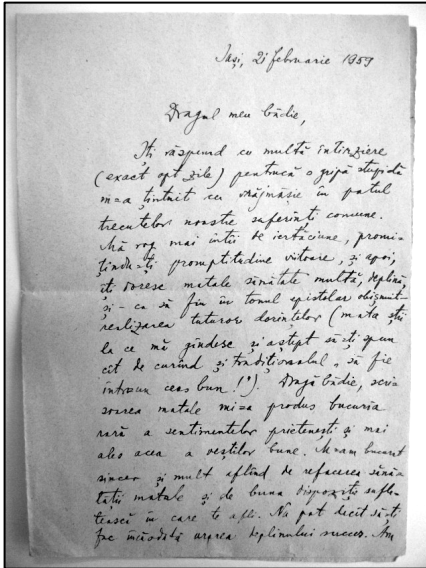 Iași, 21 februarie 1959
Dragul meu bădie,
Îți răspund cu multă întîrziere
(exact opt zile) pentrucă o gripă stupidă
m=a țintuit cu vrăjmășie în patul
trecutelor noastre suferinți comune.
Mă rog mai întîi de iertăciune, promi=
țîndu=ți promptitudine viitoare, și apoi,
îți doresc matale sănătate multă, deplină,
și - ca să fiu în tonul epistolar obișnuit -
realizarea tuturor dorințelor (mata știi
la ce mă gîndesc și aștept să=ți spun
cît de curînd și tradiționalul „să fie
într=un ceas bun!"). Dragă bădie, scri=
soarea matale mi=a produs bucuria
rară a sentimentelor prietenești și mai
ales acea a veștilor bune. M=am bucurat
sincer și mult aflînd de refacerea sănă=
tății matale și de buna dispoziție sufle=
tească în care te afli. Nu pot decît să=ți
fac încăodată urarea deplinului succes. Am